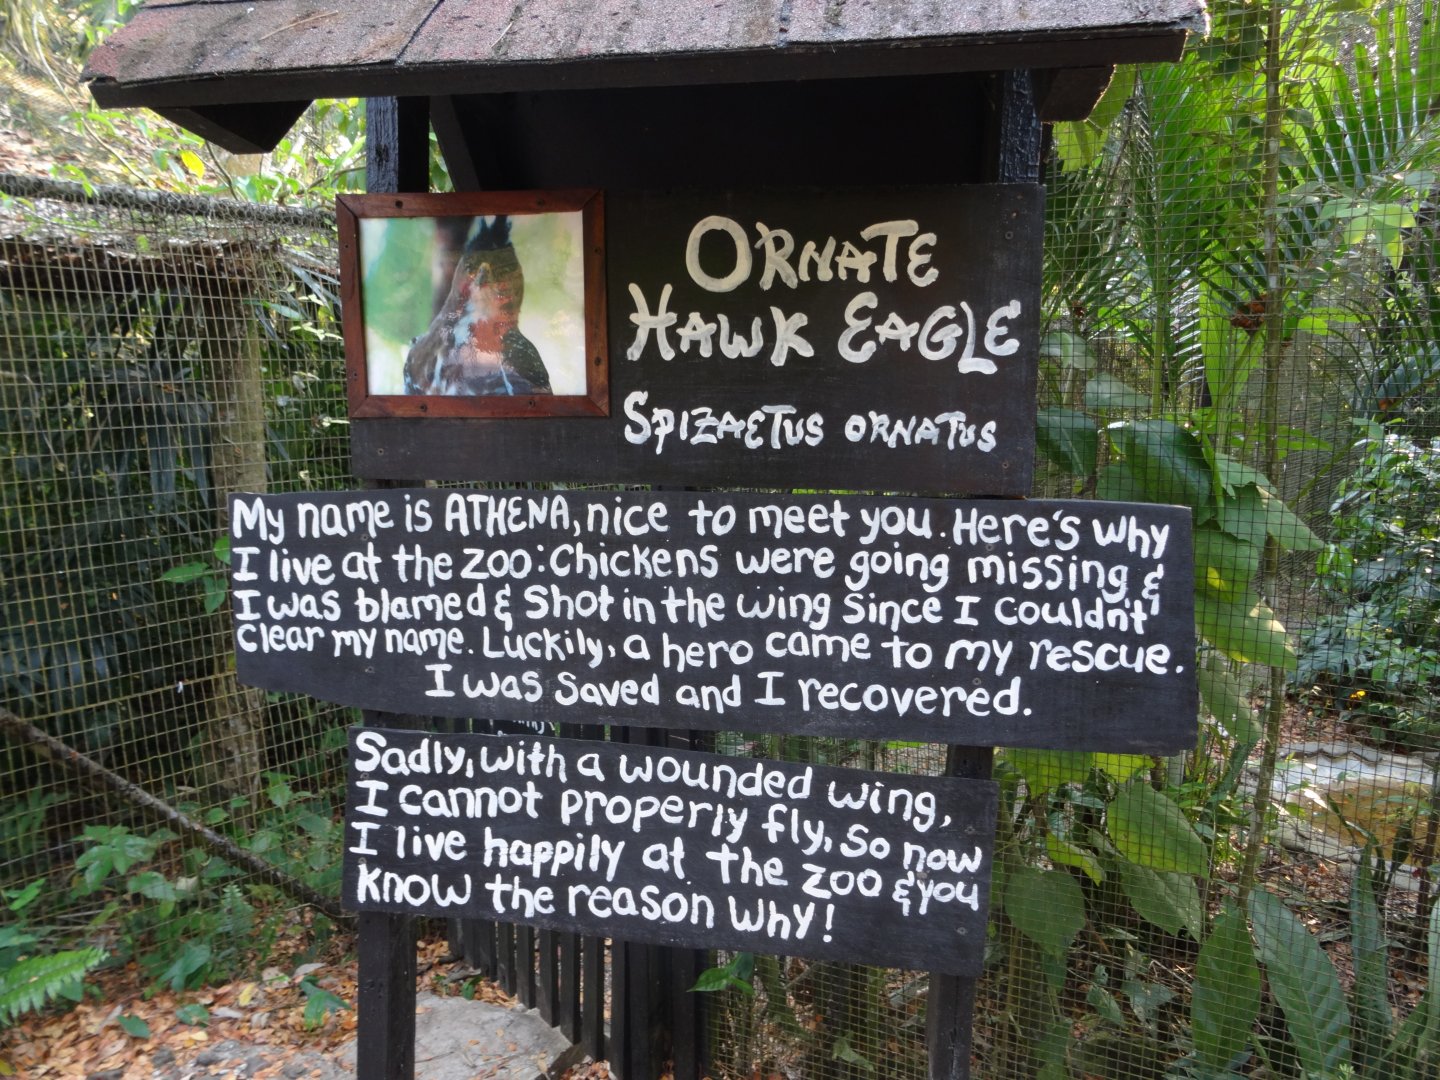 ORNATE
HAWK EAGLE
SPIZAETUS ORNATUS
My name is ATHENA, nice to meet you. Here's why
I live at the zoo: Chickens were going missing &
I was blamed & shot in the wing since I couldn't
clear my name. Luckily, a hero came to my rescue.
I was saved and I recovered.
Sadly, with a wounded wing,
I cannot properly fly, so now
I live happily at the zoo & you
know the reason why!